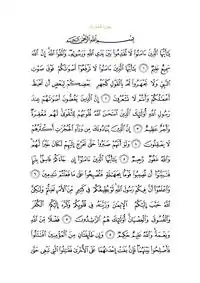 بِسْمِ اللَّهِ الرَّحْمَٰنِ الرَّحِيمِ
يَا أَيُّهَا الَّذِينَ ءَامَنُوا لَا تُقَدِّمُوا بَيْنَ يَدَيِ اللَّهِ وَرَسُولِهِ وَاتَّقُوا اللَّهَ إِنَّ اللَّهَ
سَمِيعٌ عَلِيمٌ ١ يَا أَيُّهَا الَّذِينَ ءَامَنُوا لَا تَرْفَعُوا أَصْوَاتَكُمْ فَوْقَ صَوْتِ
النَّبِيِّ وَلَا تَجْهَرُوا لَهُ بِالْقَوْلِ كَجَهْرِ بَعْضِكُمْ لِبَعْضٍ أَن تَحْبَطَ
أَعْمَالُكُمْ وَأَنتُمْ لَا تَشْعُرُونَ ٢ إِنَّ الَّذِينَ يَغُضُّونَ أَصْوَاتَهُمْ عِندَ
رَسُولِ اللَّهِ أُولَٰئِكَ الَّذِينَ امْتَحَنَ اللَّهُ قُلُوبَهُمْ لِلتَّقْوَىٰ لَهُم مَّغْفِرَةٌ
وَأَجْرٌ عَظِيمٌ ٣ إِنَّ الَّذِينَ يُنَادُونَكَ مِن وَرَاءِ الْحُجُرَاتِ أَكْثَرُهُمْ
لَا يَعْقِلُونَ ٤ وَلَوْ أَنَّهُمْ صَبَرُوا حَتَّىٰ تَخْرُجَ إِلَيْهِمْ لَكَانَ خَيْرًا لَّهُمْ
وَاللَّهُ غَفُورٌ رَّحِيمٌ ٥ يَا أَيُّهَا الَّذِينَ ءَامَنُوا إِن جَاءَكُمْ فَاسِقٌ بِنَبَإٍ
فَتَبَيَّنُوا أَن تُصِيبُوا قَوْمًا بِجَهَالَةٍ فَتُصْبِحُوا عَلَىٰ مَا فَعَلْتُمْ نَادِمِينَ ٦
وَاعْلَمُوا أَنَّ فِيكُمْ رَسُولَ اللَّهِ لَوْ يُطِيعُكُمْ فِي كَثِيرٍ مِّنَ الْأَمْرِ لَعَنِتُّمْ وَلَٰكِنَّ
اللَّهَ حَبَّبَ إِلَيْكُمُ الْإِيمَانَ وَزَيَّنَهُ فِي قُلُوبِكُمْ وَكَرَّهَ إِلَيْكُمُ الْكُفْرَ
وَالْفُسُوقَ وَالْعِصْيَانَ أُولَٰئِكَ هُمُ الرَّاشِدُونَ ٧ فَضْلًا مِّنَ اللَّهِ
وَنِعْمَةً وَاللَّهُ عَلِيمٌ حَكِيمٌ ٨ وَإِن طَائِفَتَانِ مِنَ الْمُؤْمِنِينَ اقْتَتَلُوا
فَأَصْلِحُوا بَيْنَهُمَا فَإِن بَغَتْ إِحْدَاهُمَا عَلَى الْأُخْرَىٰ فَقَاتِلُوا الَّتِي تَبْغِي حَتَّىٰ